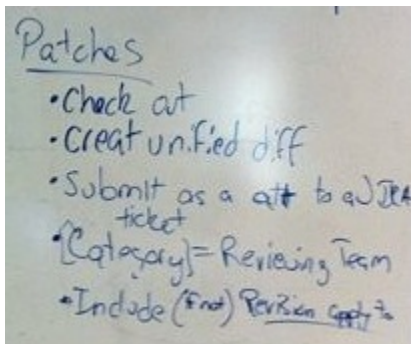 Patches
• Check out
• Creat unified diff
• Submit as a att to a JIRA
ticket
• [Category] = Reviewing Team
• Include (if not) Revision apply to